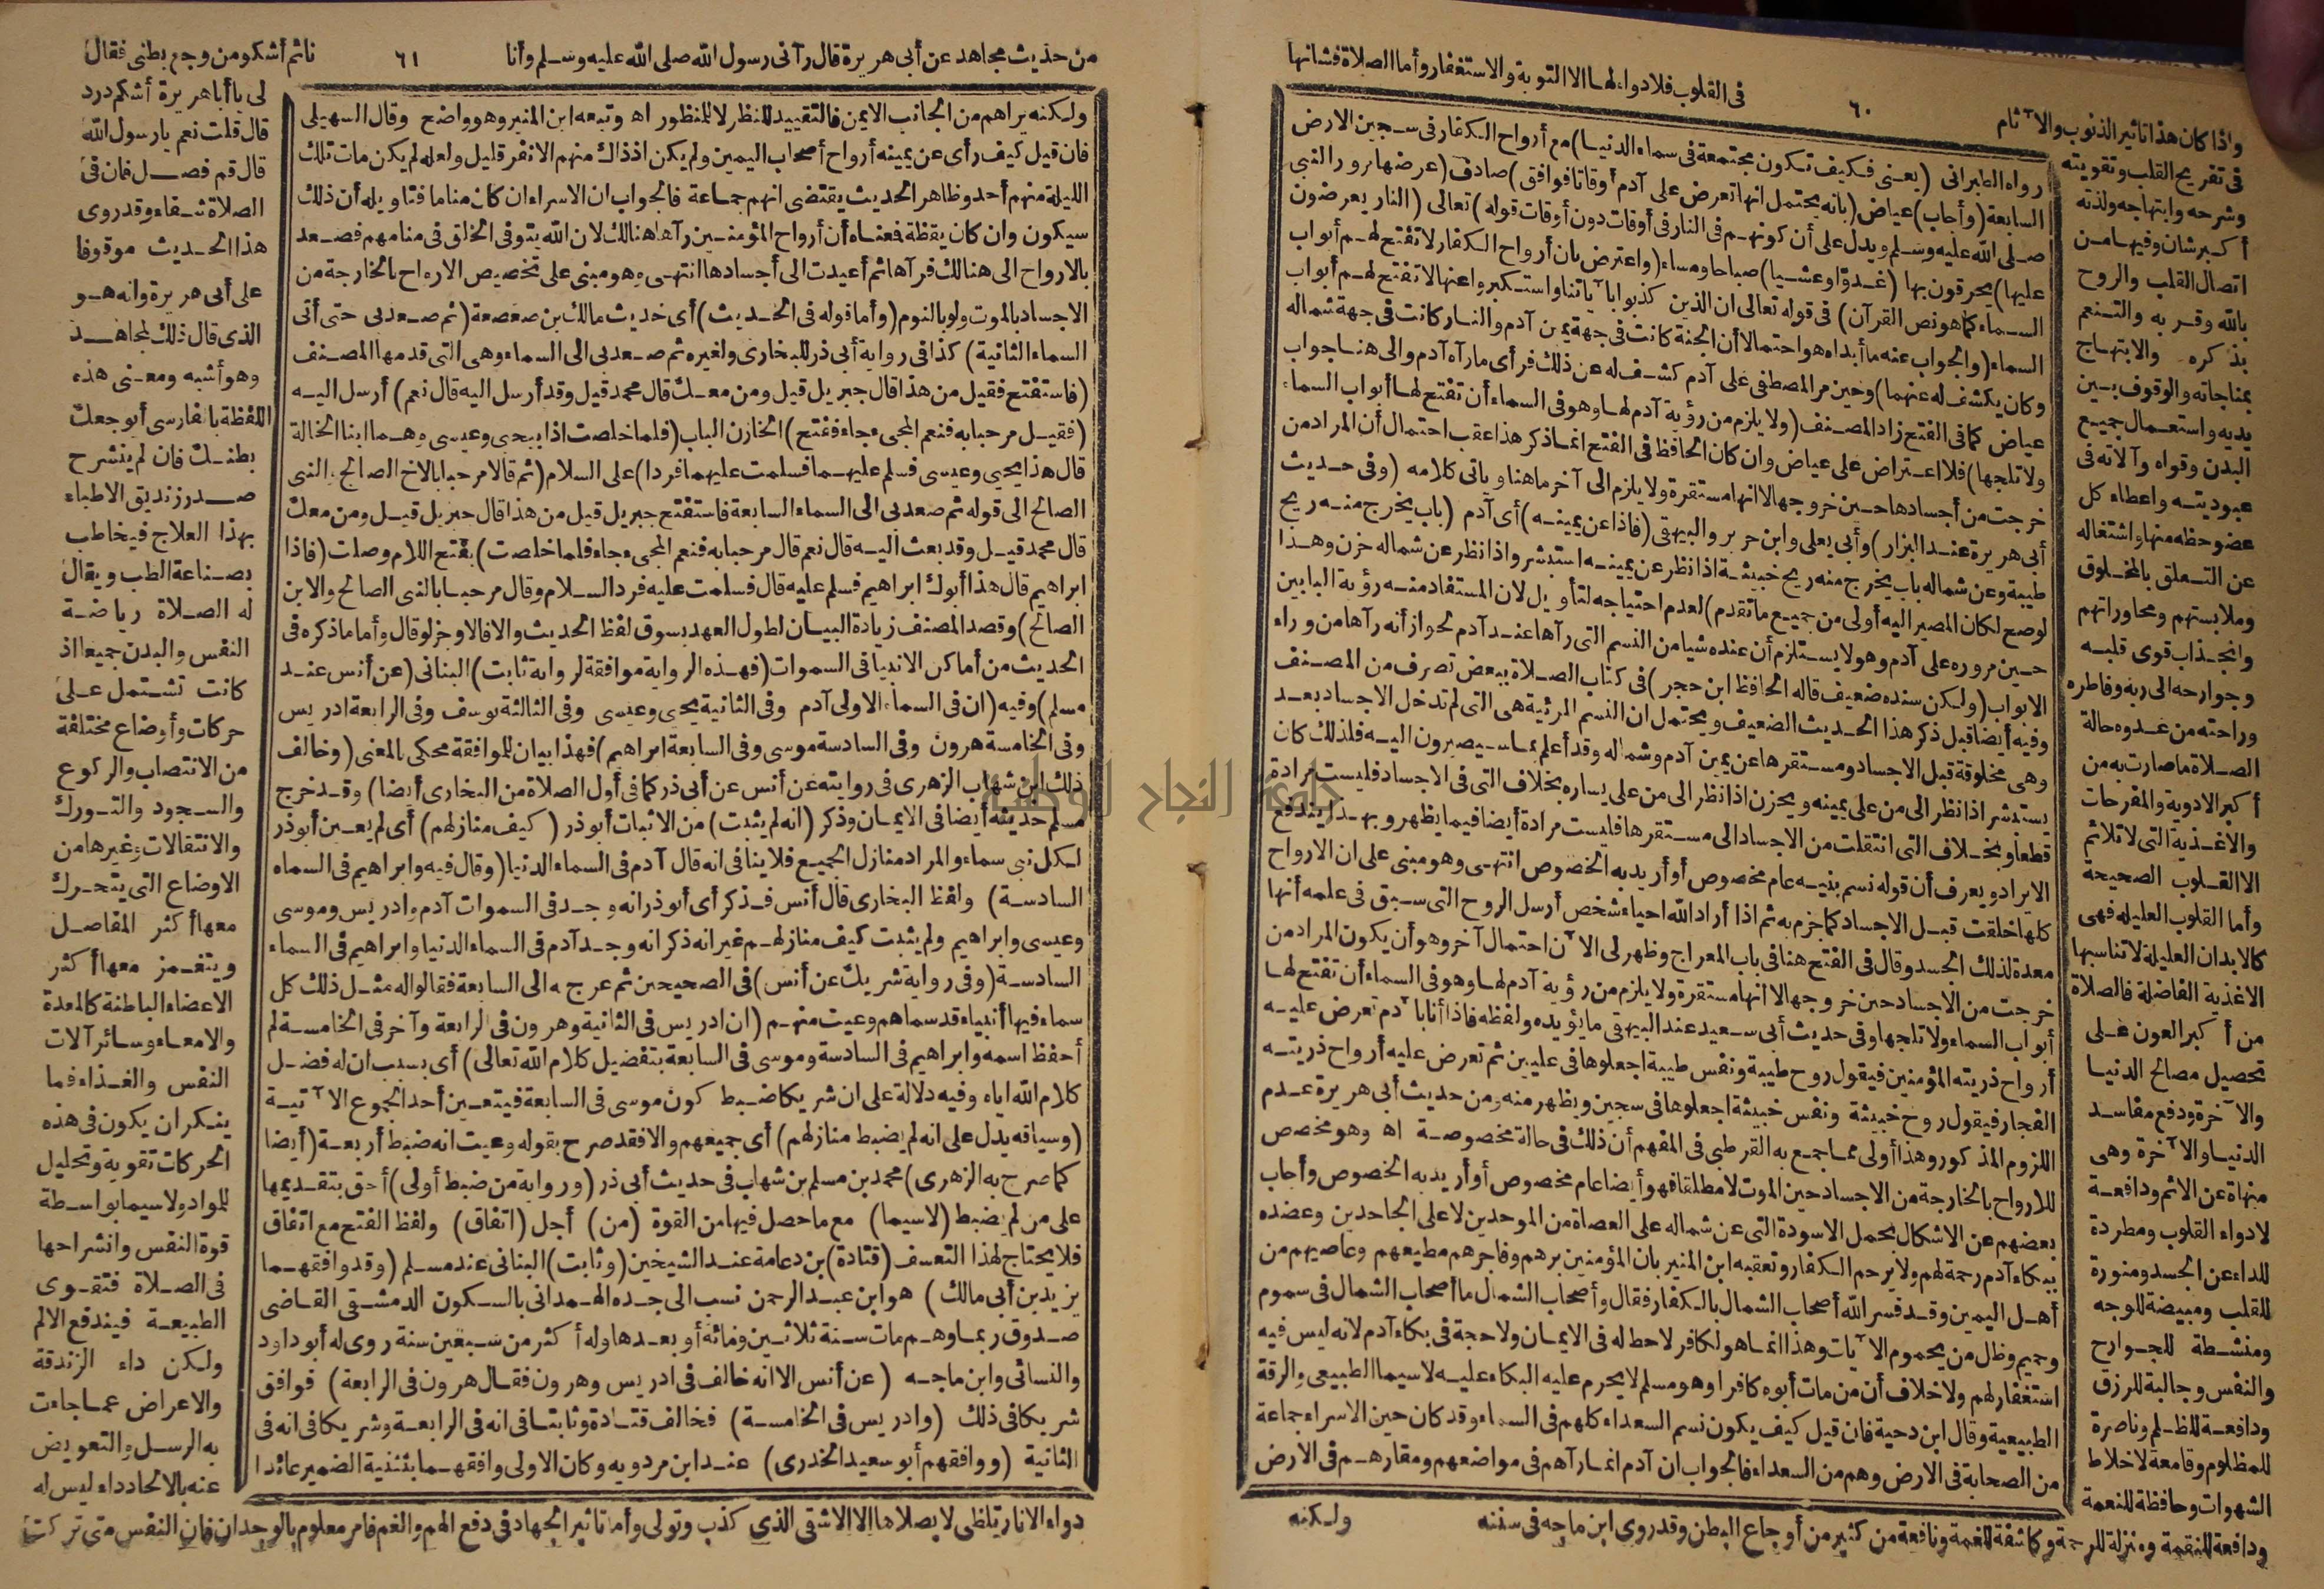 في القلوب فلا دواء لها الا التوبة والاستغفار وأما الصلاة فشانها
٦٠
واذا كان هذا تاثير الذنوب والآثام
في تفريح القلب وتقويته
وشرحه وابتهاجه ولذته
أكبر شان وفيها من
اتصال القلب والروح
بالله وقربه والتنعم
بذكره والابتهاج
بمناجاته والوقوف بين
يديه واستعمال جميع
البدن وقواه وآلاته في
عبوديته واعطاء كل
عضو حظه منها واشتغاله
عن التعلق بالمخلوق
وملابستهم ومحاوراتهم
وانجذاب قوى قلبه
وجوارحه الى ربه وفاطره
وراحته من عدوه حالة
الصلاة ما صارت به من
أكبر الادوية والمفرحات
والأغذية التي لا تلائم
الا القلوب الصحيحة
وأما القلوب العليلة فهي
كالابدان العليلة لا تناسبها
الاغذية الفاضلة فالصلاة
من أكبر العون على
تحصيل مصالح الدنيا
والآخرة ودفع مفاسد
الدنيا والآخرة وهي
منهاة عن الاثم ودافعة
لادواء القلوب ومطردة
للداء عن الجسد ومنورة
للقلب ومبيضة للوجه
ومنشطة للجوارح
والنفس وجالبة للرزق
ودافعة للظلم وناصرة
للمظلوم وقامعة لاخلاط
الشهوات وحافظة للنعمة
ودافعة للنقمة ومنزلة للرحمة وكاشفة للغمة ونافعة من كثير من أوجاع البطن وقد روى ابن ماجه في سننه
رواه الطبراني (يعني فكيف تكون مجتمعة في سماء الدنيا) مع أرواح الكفار في سجين الارض
السابعة (وأجاب) عياض (بانه يحتمل انها تعرض على آدم أوقاتا فوافق) صادف (عرضها مرور النبي
صلى الله عليه وسلم ويدل على أن كونهم في النار في أوقات دون أوقات قوله) تعالى (النار يعرضون
عليها) يحرقون بها (غدوّا وعشيا) صباحا ومساء (واعترض بان أرواح الكفار لا تفتح لهم أبواب
السماء كما هو نص القرآن) في قوله تعالى ان الذين كذبوا بآياتنا واستكبروا عنها لا تفتح لهم أبواب
السماء (والجواب عنه ما أبداه هو احتمالا أن الجنة كانت في جهة يمين آدم والنار كانت في جهة شماله
وكان يكشف له عنهما) وحين مر المصطفى على آدم كشف له عن ذلك فرأى ما رآه آدم والى هنا جواب
عياض كما في الفتح زاد المصنف (ولا يلزم من رؤية آدم لها وهو في السماء أن تفتح لها أبواب السماء
ولا تلجها) فلا اعتراض على عياض وان كان الحافظ في الفتح انما ذكر هذا عقب احتمال أن المراد من
خرجت من أجسادها حين خروجها لا انها مستقرة ولا يلزم الى آخر ما هنا ويأتي كلامه (وفي حديث
أبي هريرة عند البزار) وأبي يعلى وابن جرير والبيهقي (فاذا عن يمينه) أي آدم (باب يخرج منه ريح
طيبة وعن شماله باب يخرج منه ريح خبيثة اذا نظر عن يمينه استبشر واذا نظر عن شماله حزن وهذا
لو صح لكان المصير اليه أولى من جميع ما تقدم) لعدم احتياجه لتأويل لان المستفاد منه رؤية البابين
حين مروره على آدم وهو لا يستلزم أن عنده شيا من النسم التي رآها عند آدم لجواز أنه رآها من وراء
الابواب (ولكن سنده ضعيف قاله الحافظ ابن حجر) في كتاب الصلاة ببعض تصرف من المصنف
وفيه أيضا قبل ذكر هذا الحديث الضعيف ويحتمل ان النسم المرئية هي التي لم تدخل الاجساد بعد
وهي مخلوقة قبل الاجساد ومستقرها عن يمين آدم وشماله وقد أعلم بما سيصيرون اليه فلذلك كان
يستبشر اذا نظر الى من على يمينه ويحزن اذا نظر الى من على يساره بخلاف التي في الاجساد فليست مرادة
قطعا وبخلاف التي انتقلت من الاجساد الى مستقرها فليست مرادة أيضا فيما يظهر وبهذا يندفع
الايراد ويعرف أن قوله نسم بنيه عام مخصوص أو أريد به الخصوص انتهى وهو مبني على ان الارواح
كلها خلقت قبل الاجساد كما جزم به ثم اذا أراد الله احياء شخص أرسل الروح التي سبق في علمه أنها
معدة لذلك الجسد وقال في الفتح هنا في باب المعراج وظهر لي الآن احتمال آخر وهو أن يكون المراد من
خرجت من الاجساد حين خروجها لا انها مستقرة ولا يلزم من رؤية آدم لها وهو في السماء أن تفتح لها
أبواب السماء ولا تلجها وفي حديث أبي سعيد عند البيهقي ما يؤيده ولفظه فاذا أنا بآدم تعرض عليه
أرواح ذريته المؤمنين فيقول روح طيبة ونفس طيبة اجعلوها في عليين ثم تعرض عليه أرواح ذريته
الفجار فيقول روح خبيثة ونفس خبيثة اجعلوها في سجين ويظهر منه ومن حديث أبي هريرة عدم
اللزوم المذكور وهذا أولى مما جمع به القرطبي في المفهم أن ذلك في حالة مخصوصة اه وهو مخصص
للارواح بالخارجة من الاجساد حين الموت لا مطلقا فهو أيضا عام مخصوص أو أريد به الخصوص وأجاب
بعضهم عن الاشكال بحمل الاسودة التي عن شماله على العصاة من الموحدين لا على الجاحدين وعضده
ببكاء آدم رحمة لهم ولا يرحم الكفار وتعقبه ابن المنير بان المؤمنين برهم وفاجرهم مطيعهم وعاصيهم من
أهل اليمين وقد فسر الله أصحاب الشمال بالكفار فقال وأصحاب الشمال ما أصحاب الشمال في سموم
وحميم وظل من يحموم الآيات وهذا انما هو لكافر لا حظ له في الايمان ولا حجة في بكاء آدم لانه ليس فيه
استغفار لهم ولا خلاف أن من مات أبوه كافرا وهو مسلم لا يحرم عليه البكاء عليه لا سيما الطبيعي والرقة
الطبيعية وقال ابن دحية فان قيل كيف يكون نسم السعداء كلهم في السماء وقد كان حين الاسراء جماعة
من الصحابة في الارض وهم من السعداء فالجواب ان آدم انما رآهم في مواضعهم ومقارهم في الارض
ولكنه
من حديث مجاهد عن أبي هريرة قال رآني رسول الله صلى الله عليه وسلم وأنا
٦١
نائم أشكو من وجع بطني فقال
لي يا أبا هريرة أشكم درد
قال قلت نعم يا رسول الله
قال قم فصل فان في
الصلاة شفاء وقد روى
هذا الحديث موقوفا
على أبي هريرة وانه هو
الذي قال ذلك لمجاهد
وهو أشبه ومعنى هذه
اللفظة بالفارسي أيوجعك
بطنك فان لم ينشرح
صدر زنديق الاطباء
بهذا العلاج فيخاطب
بصناعة الطب ويقال
له الصلاة رياضة
النفس والبدن جميعا اذ
كانت تشتمل على
حركات وأوضاع مختلفة
من الانتصاب والركوع
والسجود والتورك
والانتقالات وغيرها من
الاوضاع التي يتحرك
معها أكثر المفاصل
وينغمز معها أكثر
الاعضاء الباطنة كالمعدة
والامعاء وسائر آلات
النفس والغذاء فما
ينكر ان يكون في هذه
الحركات تقوية وتحليل
للمواد ولا سيما بواسطة
قوة النفس وانشراحها
في الصلاة فتقوى
الطبيعة فيندفع الالم
ولكن داء الزندقة
والاعراض عما جاءت
به الرسل والتعويض
عنه بالالحاد داء ليس له
دواء الا نار تلظى لا يصلاها الا الاشقى الذي كذب وتولى وأما تاثير الجهاد في دفع الهم والغم فامر معلوم بالوجدان فان النفس متى تركت
ولكنه يراهم من الجانب الايمن فالتقييد للنظر لا للمنظور اه وتبعه ابن المنير وهو واضح وقال السهيلي
فان قيل كيف رأى عن يمينه أرواح أصحاب اليمين ولم يكن اذ ذاك منهم الا نفر قليل ولعله لم يكن مات تلك
الليلة منهم أحد وظاهر الحديث يقتضي انهم جماعة فالجواب ان الاسراء ان كان مناما فتاويله أن ذلك
سيكون وان كان يقظة فمعناه أن أرواح المؤمنين رآها هنالك لان الله يتوفى الخلق في منامهم فصعد
بالارواح الى هنالك فرآها ثم أعيدت الى أجسادها انتهى وهو مبني على تخصيص الارواح بالخارجة من
الاجساد بالموت ولو بالنوم (وأما قوله في الحديث) أي حديث مالك بن صعصعة (ثم صعد بي حتى أتى
السماء الثانية) كذا في رواية أبي ذر للبخاري ولغيره ثم صعد بي الى السماء وهي التي قدمها المصنف
(فاستفتح فقيل من هذا قال جبريل قيل ومن معك قال محمد قيل وقد أرسل اليه قال نعم) أرسل اليه
(فقيل مرحبا به فنعم المجيء جاء ففتح) الخازن الباب (فلما خلصت اذا بيحيى وعيسى وهما ابنا الخالة
قال هذا يحيى وعيسى فسلم عليهما فسلمت عليهما فردا) على السلام (ثم قالا مرحبا بالاخ الصالح والنبي
الصالح الى قوله ثم صعد بي الى السماء السابعة فاستفتح جبريل قيل من هذا قال جبريل قيل ومن معك
قال محمد قيل وقد بعث اليه قال نعم قال مرحبا به فنعم المجيء جاء فلما خلصت) بفتح اللام وصلت (فاذا
ابراهيم قال هذا أبوك ابراهيم فسلم عليه قال فسلمت عليه فرد السلام وقال مرحبا بالنبي الصالح والابن
الصالح) وقصد المصنف زيادة البيان لطول العهد بسوق لفظ الحديث والا فالاوجز لو قال وأما ما ذكره في
الحديث من أماكن الانبياء في السموات (فهذه الرواية موافقة لرواية ثابت) البناني (عن أنس عند
مسلم) وفيه (ان في السماء الاولى آدم وفي الثانية يحيى وعيسى وفي الثالثة يوسف وفي الرابعة ادريس
وفي الخامسة هرون وفي السادسة موسى وفي السابعة ابراهيم) فهذا بيان للموافقة محكي بالمعنى (وخالف
ذلك ابن شهاب الزهري في روايته عن أنس عن أبي ذر كما في أول الصلاة من البخاري أيضا) وقد خرج
مسلم حديثه أيضا في الايمان وذكر (انه لم يثبت) من الاثبات أبو ذر (كيف منازلهم) أي لم يعين أبو ذر
لكل نبي سماء والمراد منازل الجميع فلا ينافي انه قال آدم في السماء الدنيا (وقال فيه وابراهيم في السماء
السادسة) ولفظ البخاري قال أنس فذكر أي أبو ذر انه وجد في السموات آدم وادريس وموسى
وعيسى وابراهيم ولم يثبت كيف منازلهم غير انه ذكر انه وجد آدم في السماء الدنيا وابراهيم في السماء
السادسة (وفي رواية شريك عن أنس) في الصحيحين ثم عرج به الى السابعة فقالوا له مثل ذلك كل
سماء فيها أنبياء قد سماهم وعيت منهم (ان ادريس في الثانية وهرون في الرابعة وآخر في الخامسة لم
أحفظ اسمه وابراهيم في السادسة وموسى في السابعة بتفضيل كلام الله تعالى) أي بسبب ان له فضل
كلام الله اياه وفيه دلالة على ان شريكا ضبط كون موسى في السابعة فيتعين أحد الجموع الآتية
(وسياقه يدل على انه لم يضبط منازلهم) أي جميعهم والا فقد صرح بقوله وعيت انه ضبط أربعة (أيضا
كما صرح به الزهري) محمد بن مسلم بن شهاب في حديث أبي ذر (ورواية من ضبط أولى) أحق بتقديمها
على من لم يضبط (لا سيما) مع ما حصل فيها من القوة (من) أجل (اتفاق) ولفظ الفتح مع اتفاق
فلا يحتاج لهذا التعسف (قتادة) بن دعامة عند الشيخين (وثابت) البناني عند مسلم (وقد وافقهما
يزيد بن أبي مالك) هو ابن عبد الرحمن نسب الى جده الهمداني بالسكون الدمشقي القاضي
صدوق ربما وهم مات سنة ثلاثين ومائة أو بعدها وله أكثر من سبعين سنة روى له أبو داود
والنسائي وابن ماجه (عن أنس الا انه خالف في ادريس وهرون فقال هرون في الرابعة) فوافق
شريكا في ذلك (وادريس في الخامسة) فخالف قتادة وثابتا في انه في الرابعة وشريكا في انه في
الثانية (ووافقهم أبو سعيد الخدري) عند ابن مردويه وكان الاولى وافقهما بتثنية الضمير عائدا
جامعة النجاح الوطنية